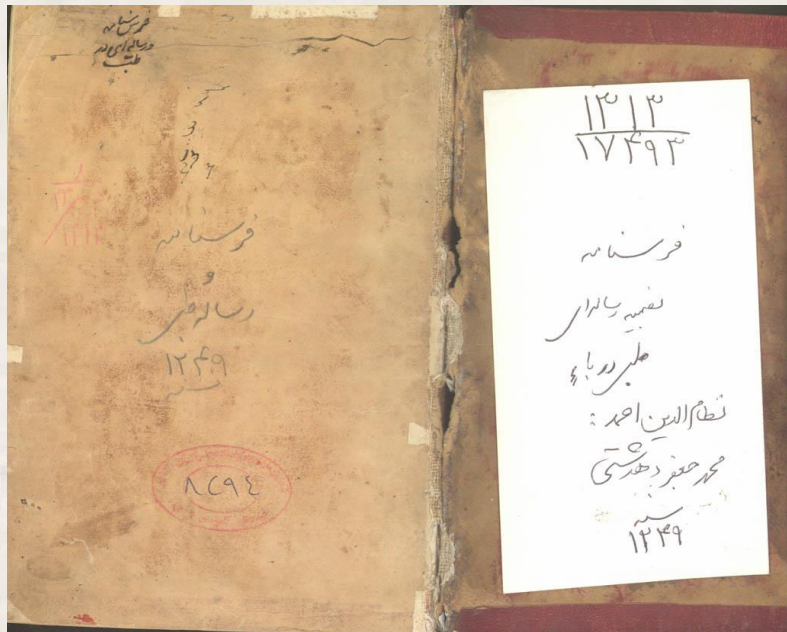 فرسنامه
و رساله‌ای در
طب
فرسنامه
و
رساله طبی
۱۲۴۹
۸۲۹۴
۱۳۱۳
۱۷۴۹۳
فرسنامه
بضمیمه رساله‌ای
طبی در باء
نظام الدین احمد :
محمد جعفر دهدشتی
سنه
۱۲۴۹